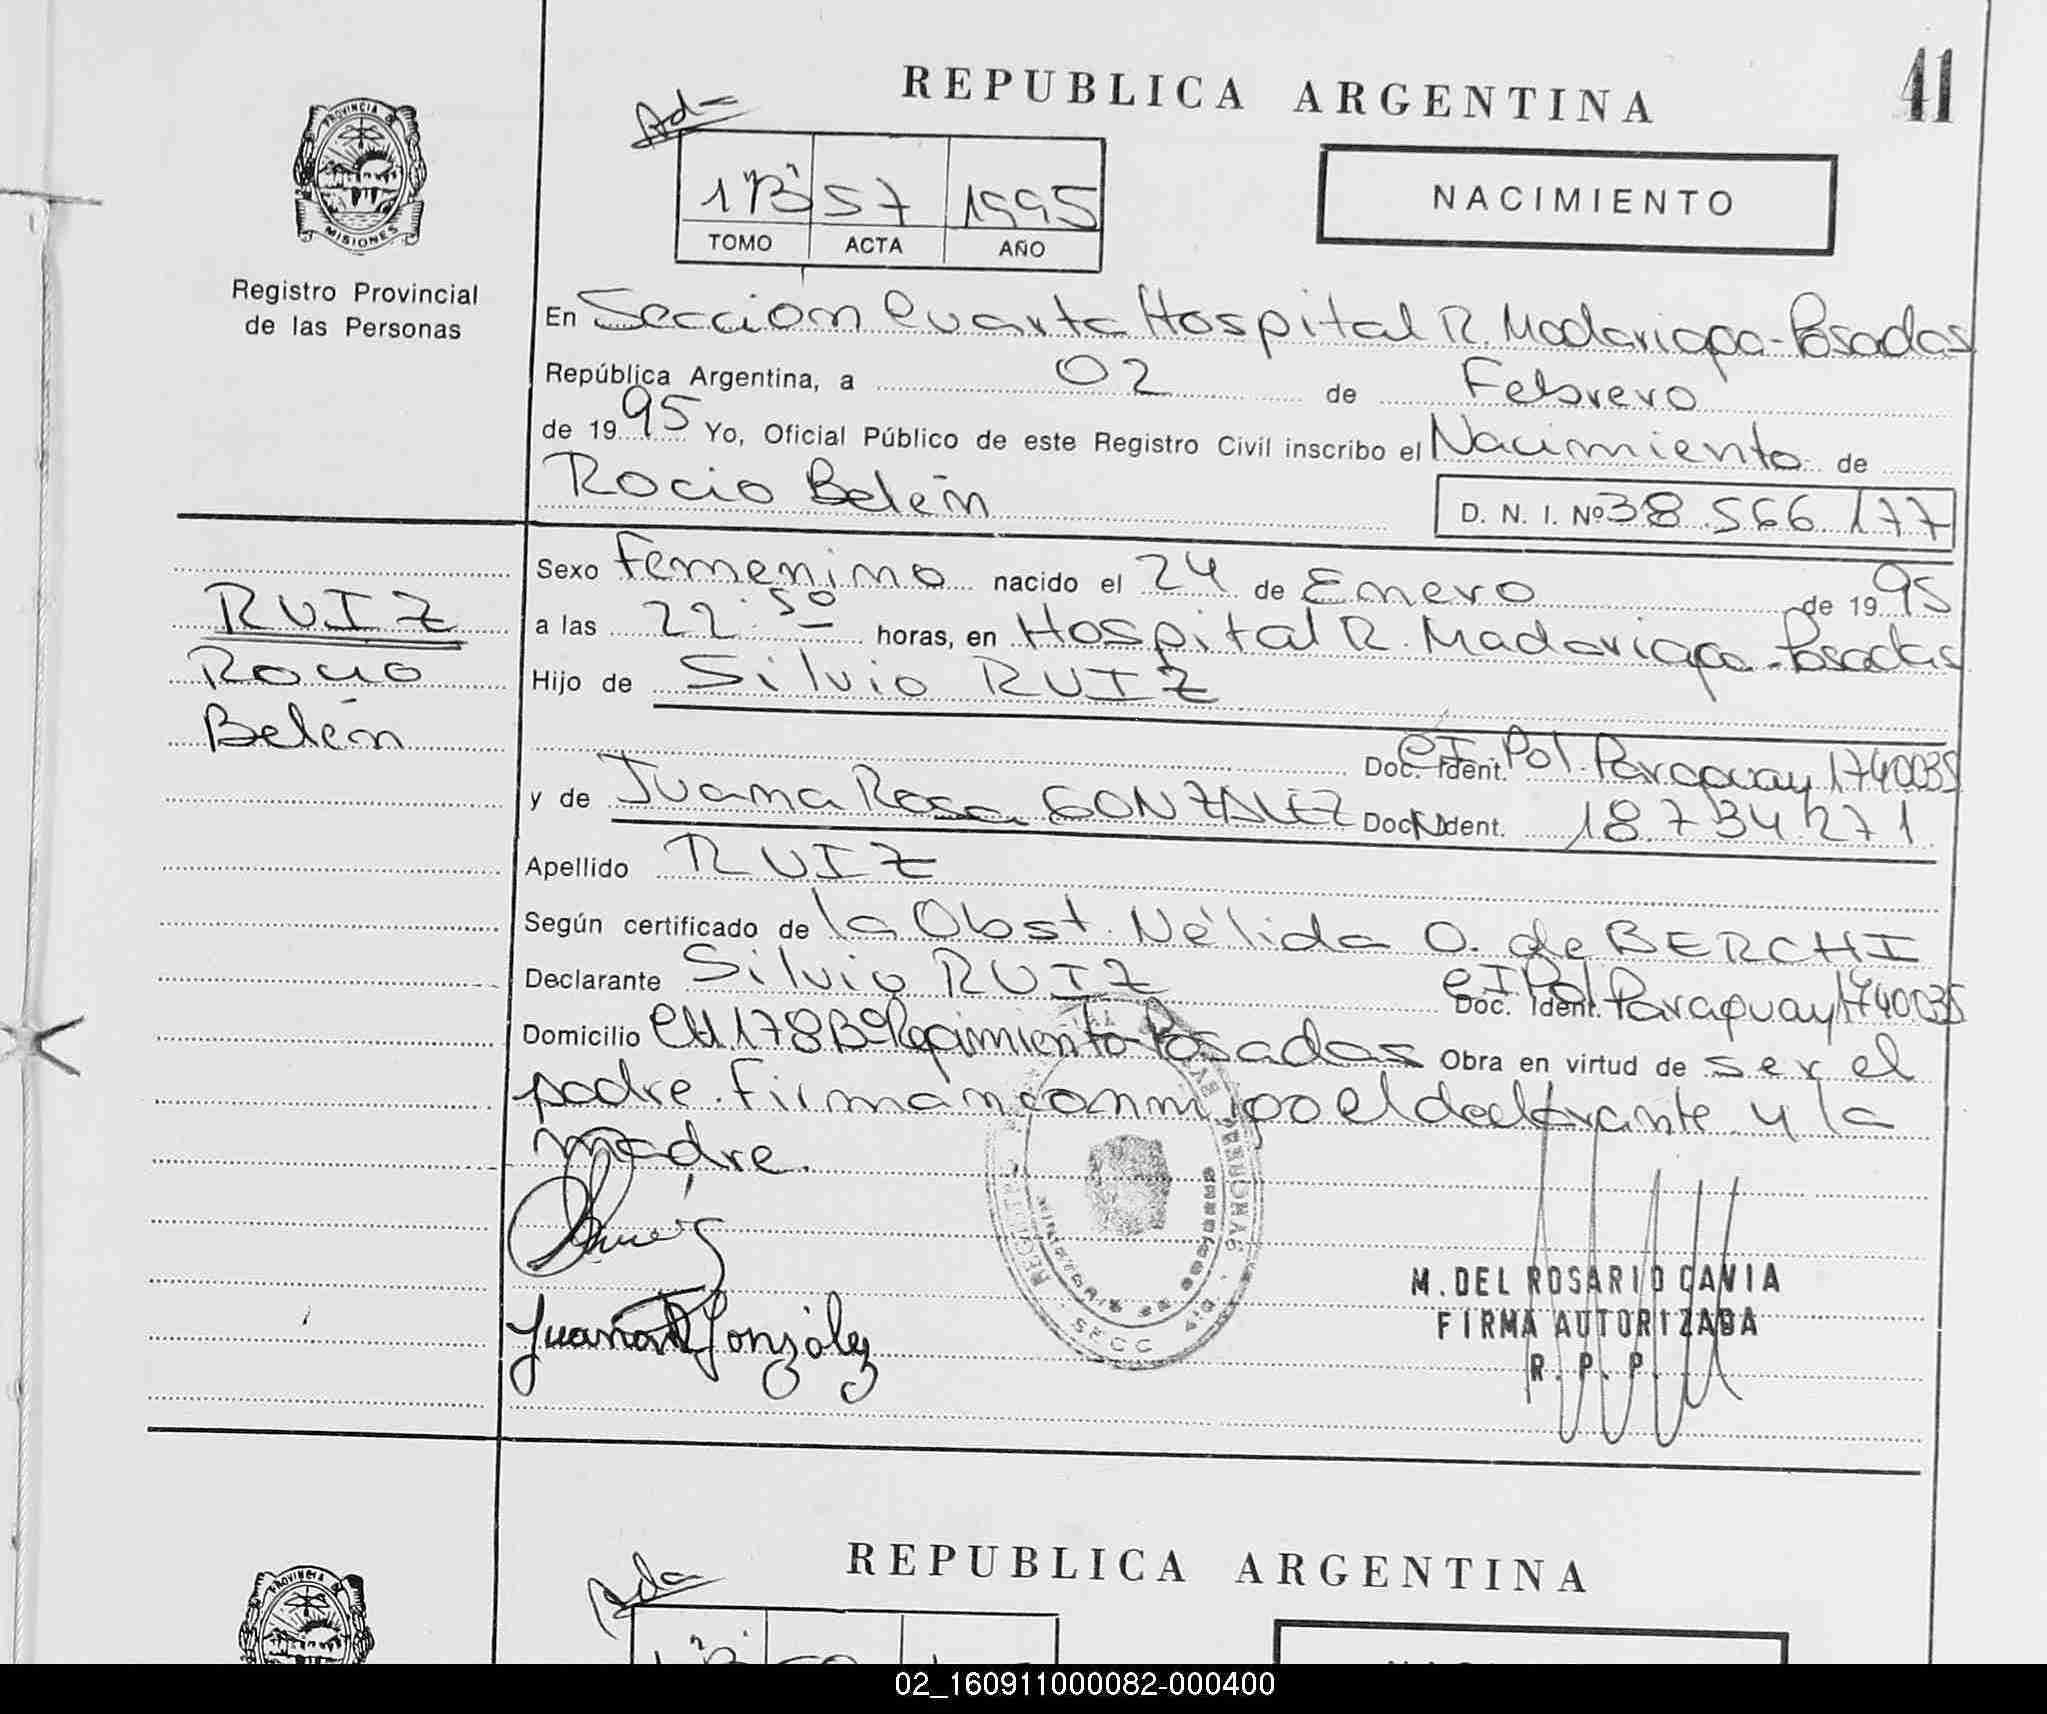 41
REPUBLICA ARGENTINA
Ad-
NACIMIENTO
1"B" 57 1995
TOMO ACTA AÑO
PROVINCIA DE
MISIONES
Registro Provincial
de las Personas
En Seccion Cuarta Hospital R. Madariaga-Posadas
República Argentina, a 02 de Febrero
de 1995 Yo, Oficial Público de este Registro Civil inscribo el Nacimiento de
Rocio Belén
D. N. I. Nº 38.566.177
RUIZ
Rocio
Belén
Sexo Femenino nacido el 24 de Enero de 1995
a las 22:50 horas, en Hospital R. Madariaga-Posadas
Hijo de Silvio RUIZ
Doc. Ident. CI. Pol. Paraguay 1740035
y de Juana Rosa GONZALEZ Doc. Ident. 18.734.271
Apellido RUIZ
Según certificado de la Obst. Nélida O. de BERCHI
Declarante Silvio RUIZ Doc. Ident. CI Pol. Paraguay 1740035
Domicilio CH 178 Bº Regimiento-Posadas Obra en virtud de ser el
padre. Firman conmigo el declarante y la
madre.
Juana R González
SECC
M. DEL ROSARIO CAVIA
FIRMA AUTORIZADA
R. P. P.
REPUBLICA ARGENTINA
Ada
PROVINCIA DE
02_160911000082-000400